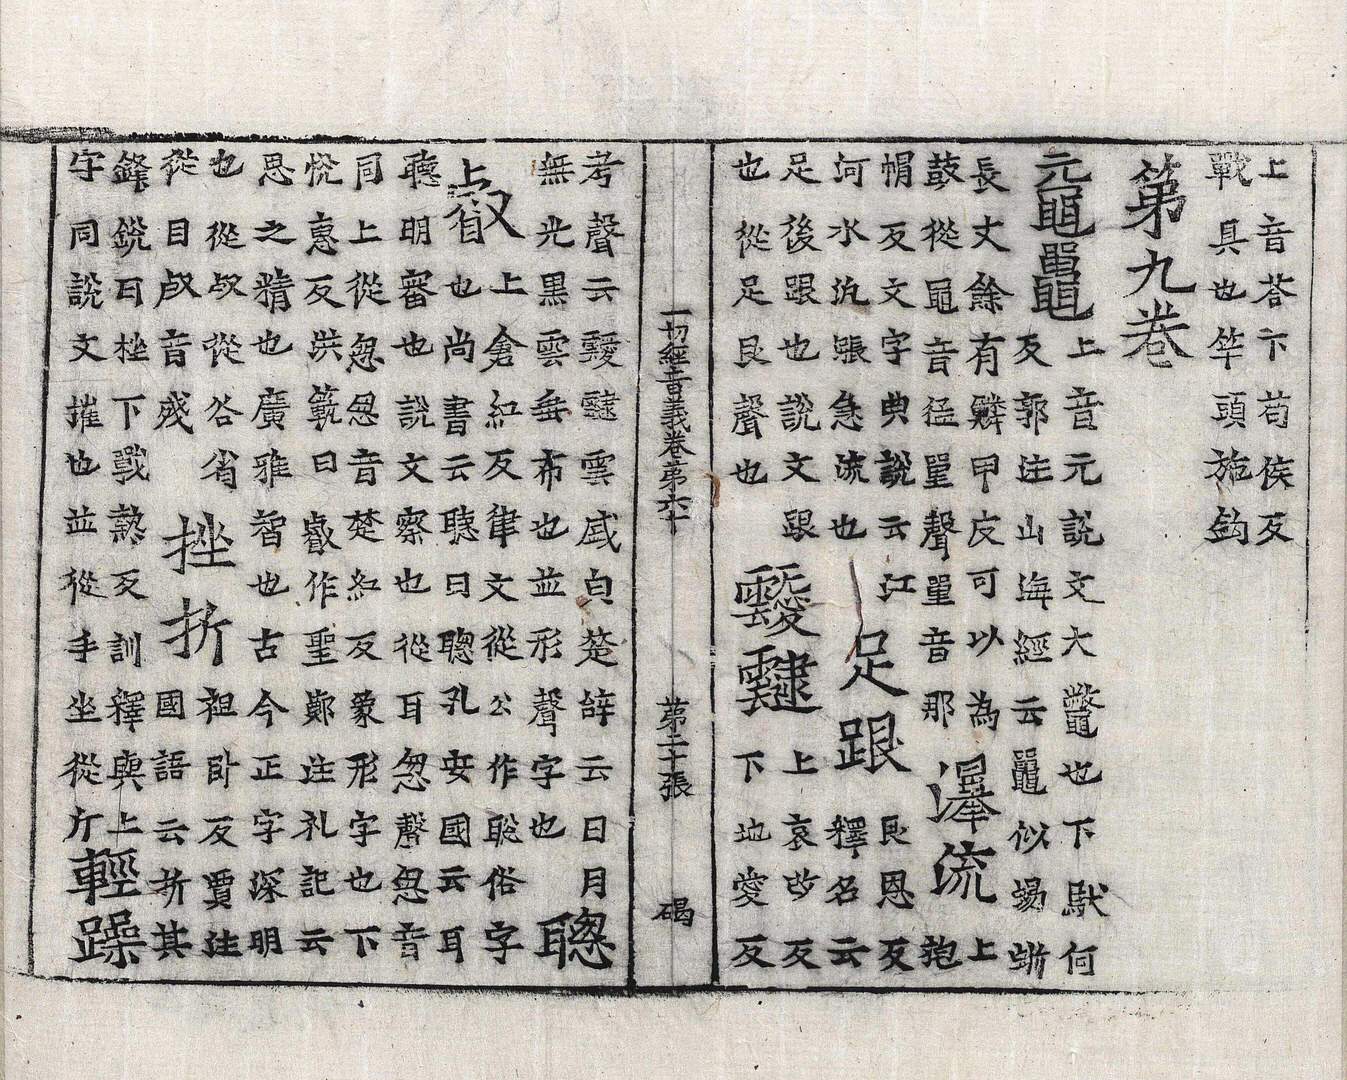 上音荅下苟侯反
戰具也竿頭施鈎
第九卷
黿鼉
上音元說文大鼈也下馱何
反郭注山海經云鼉似蜴蜥
長丈餘有鱗甲皮可以為
鼓從黽音猛單聲單音那
瀑流
上
抱
帽反文字典說云江
河水汎漲急流也
足跟
艮恩反
釋名云
足後跟也說文跟
也從足艮聲也
靉靆
上哀改反
下地愛反
考聲云靉靆雲盛皃楚辭云日月
無光黑雲垂布也並形聲字也
聰
叡
上倉紅反律文從公作聡俗字
也尚書云聽曰聰孔安國云耳
聽明審也說文察也從耳怱聲怱音
同上從怱怱音楚紅反象形字也下
恱惠反洪範曰叡作聖鄭注礼記云
思之精也廣雅智也古今正字深明
也從㕡從谷省
從目㕡音殘
挫折
祖卧反賈注
國語云折其
鋒銳曰挫下戰熱反訓釋與上
字同說文摧也並從手坐從斤
輕躁
一切經音義卷第六十
第二十張
碣